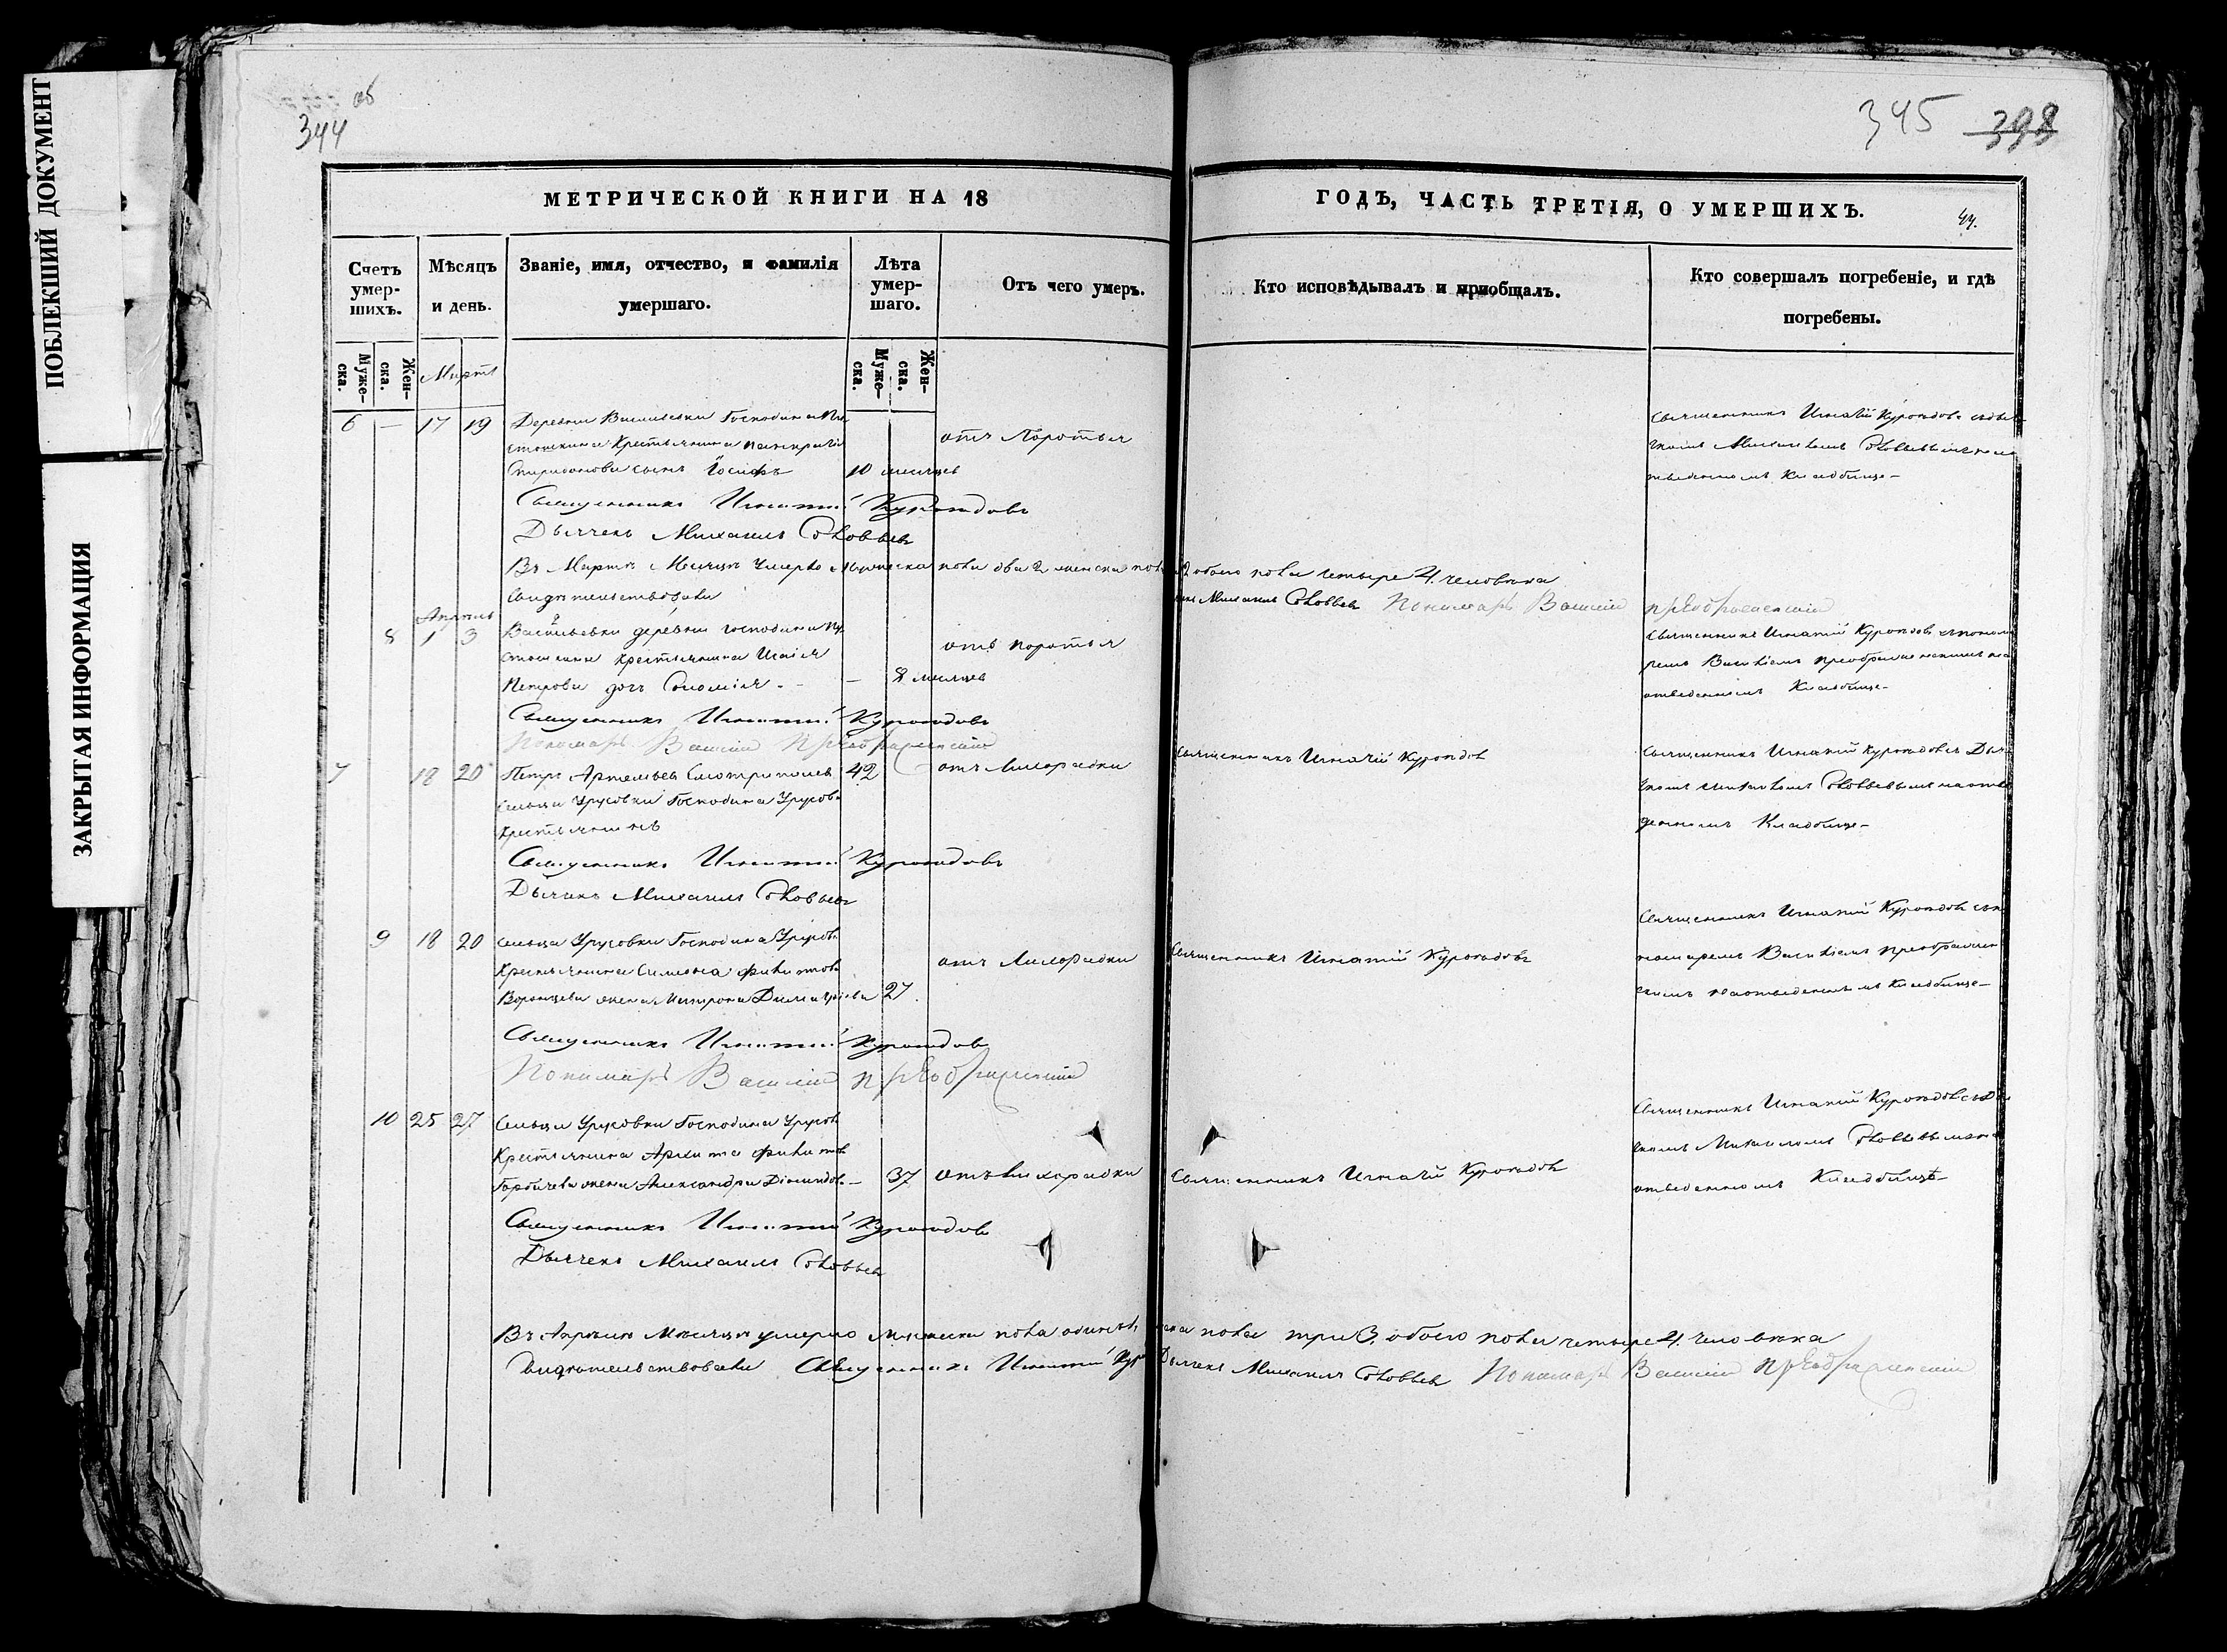 ПОБЛЕКШИЙ ДОКУМЕНТ
ЗАКРЫТАЯ ИНФОРМАЦИЯ
об
344
345 398
МЕТРИЧЕСКОЙ КНИГИ НА 18
ГОДЪ, ЧАСТЬ ТРЕТІЯ, О УМЕРШИХЪ.
44.
Счетъ умер-шихъ.
Мѣсяцъ и день.
Званіе, имя, отчество, и фамилія умершаго.
Лѣта умер-шаго.
Отъ чего умеръ.
Кто исповѣдывалъ и приобщалъ.
Кто совершалъ погребеніе, и гдѣ погребены.
Муже-ска.
Жен-ска.
Муже-ска.
Жен-ска.
Мартъ
6 — 17 19 Деревни Васильевки Господина
Крестьянина Панкратія
Спиридонова сынъ Іосифъ 10 месяцев
отъ Коротья
Священникъ Игнатій Курондовъ
Михаиломъ Соловьевымъ на
отведенномъ Кладбище-
Священникъ Игнатій Курондовъ
Дьячекъ Михаилъ Соловьевъ
Въ Мартѣ Месяце Умерло Мужеска пола два 2 женска пола 2 обоего пола четыре 4. человека
Свидетельствовали
Михаилъ Соловьев Пономарь Василій Преображенскій
Апрель
8 1 3 Васильевки деревни господина
крестьянина Исаія
Петрова дочь Соломія - — 8 месяцев
отъ коротья
Священникъ Игнатій Курондовъ съ понома
ремъ Василіемъ Преображенскимъ на
отведенномъ Кладбище-
Священникъ Игнатій Курондовъ
Пономарь Василій Преображенскій
7 18 20 Петръ Артемьевъ 42
сельца Урусовки Господина Урусова
крестьянинъ
отъ Лихорадки
Священникъ Игнатій Курондов
Священникъ Игнатій Курондовъ с Дья
чкомъ Михаиломъ Соловьевымъ на отве
денномъ Кладбище-
Священникъ Игнатій Курондовъ
Дьячекъ Михаилъ Соловьевъ
9 18 20 Сельца Урусовки Господина Урусова
Крестьянина Симеона Филиппова
Воронцева жена Матрона 27.
отъ Лихорадки
Священникъ Игнатій Курондовъ
Священникъ Игнатій Курондовъ съ по
номаремъ Василіемъ Преображен
скимъ на отведенномъ Кладбище-
Священникъ Игнатій Курондовъ
Пономарь Василій Преображенскій
10 25 27 Сельца Урусовки Господина Урусова
Крестьянина Архипа Филиппова
Горбачева жена Александра — 37
отъ Лихорадки
Священникъ Игнатій Курондовъ
Священникъ Игнатій Курондовъ съ Дья
чкомъ Михаиломъ Соловьевымъ на
отведенномъ Кладбище-
Священникъ Игнатій Курондовъ
Дьячекъ Михаилъ Соловьевъ
Въ Апрелѣ Месяце умерло Мужеска пола одинъ пола три 3. обоего пола четыре 4. человека
Свидетельствовали Священникъ Игнатій Дьячекъ Михаилъ Соловьев Пономарь Василій Преображенскій